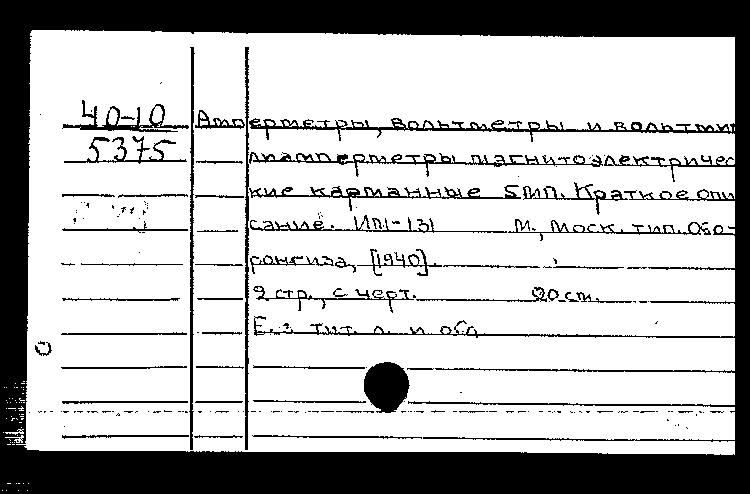 40-10
5375
Амперметры, вольтметры и вольтми
лиамперметры магнитоэлектричес
кие карманные 5МП. Краткое опи
сание. ИП1-131 М., Моск. тип. Обо-
ронгиза, [1940].
2 стр., с черт. 20 см.
Б. з тит. л. и обл